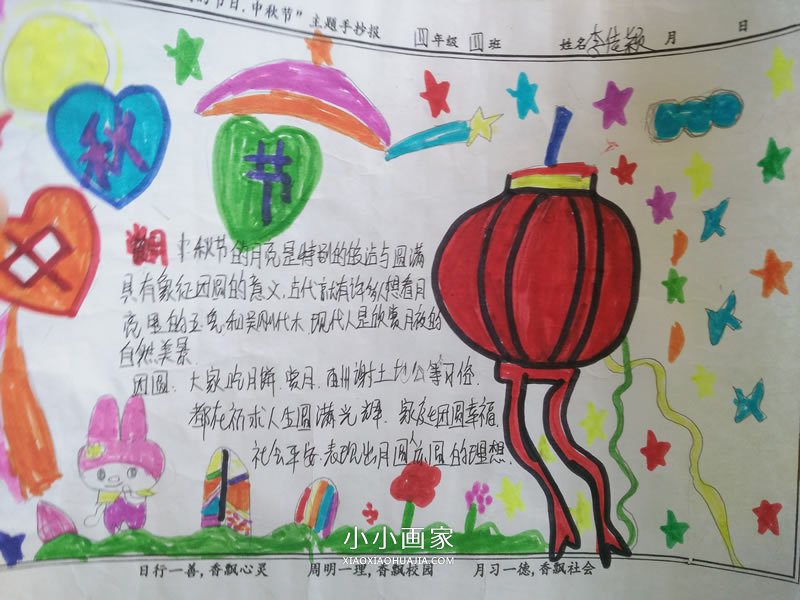 的节日,中秋节"主题手抄报
四年级 四 班 姓名 李佳颖 月 日
秋
节
中秋节的月亮是特别的皎洁与圆满
具有象征团圆的意义,古代就有许多人想着月
亮里的玉兔和吴刚伐木,现代人是欣赏月夜的
自然美景.
团圆.大家吃月饼.赏月. 谢土地公等习俗.
都在祈求人生圆满光辉.家庭团圆幸福.
社会平安.表现出月圆 圆的理想.
小小画家
XIAOXIAOHUAJIA.COM
日行一善,香飘心灵 周明一理,香飘校园 月习一德,香飘社会